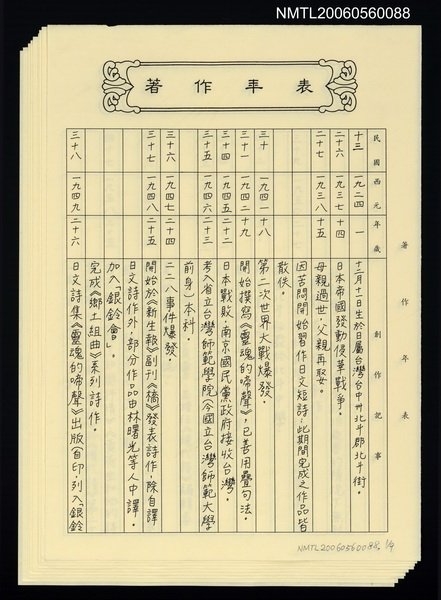 NMTL20060560088
著作年表
著作年表
民國 西元 年歲 創作記事
十三 一九二四 一 十二月十一日生於日屬台灣台中州北斗郡北斗街。
二十六 一九三七 十四 日本帝國發動侵華戰爭。
二十七 一九三八 十五 母親過世，父親再娶。
因苦悶開始習作日文短詩；此期間完成之作品皆
散佚。
三十 一九四一 十八 第二次世界大戰爆發。
三十一 一九四二 十九 開始撰寫《靈魂的啼聲》，已善用疊句法。
三十四 一九四五 二十二 日本戰敗，南京國民黨政府接收台灣。
三十五 一九四六 二十三 考入省立台灣師範學院（今國立台灣師範大學
前身）本科。
三十六 一九四七 二十四 二二八事件爆發。
三十七 一九四八 二十五 開始於《新生報》副刊《橋》發表詩作，除自譯
日文詩作外，部分作品由林曙光等人中譯。
加入「銀鈴會」。
完成《鄉土組曲》系列詩作。
三十八 一九四九 二十六 日文詩集《靈魂的啼聲》出版自印，列入「銀鈴
NMTL20060560088. 1/9